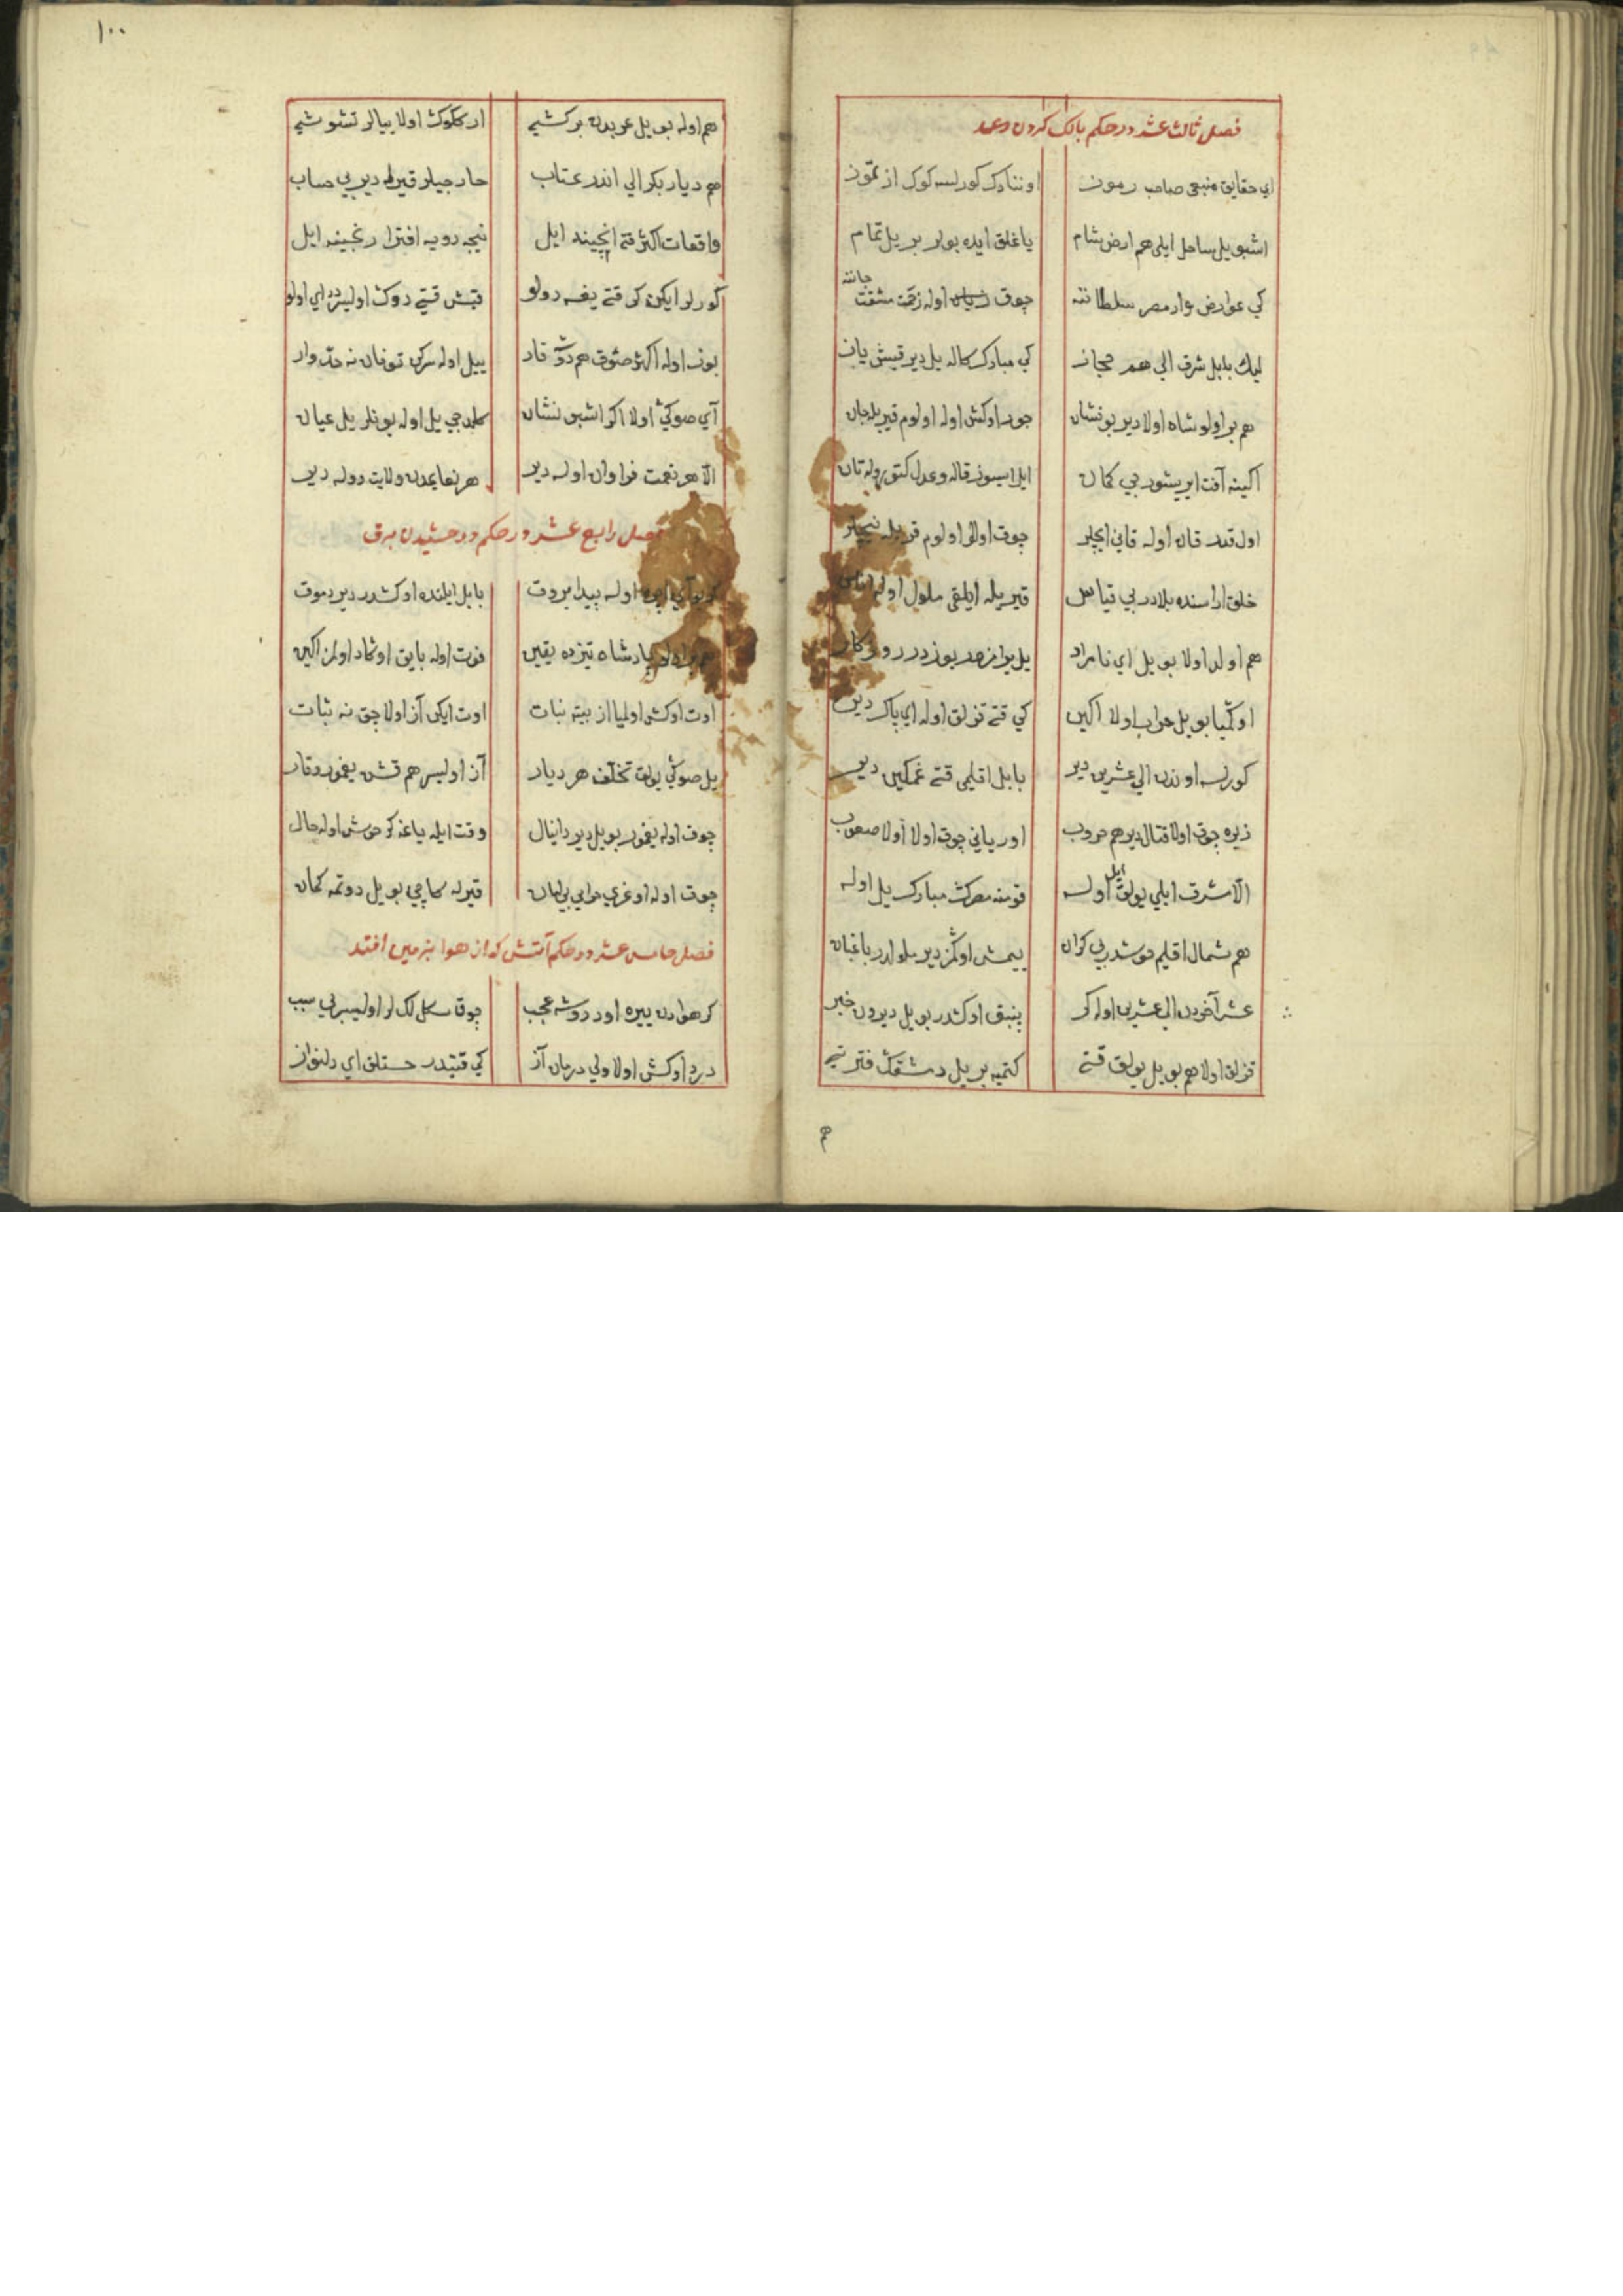 فصل ثالث عشر در حکم بانک کردن رعد
ای حقایق منبعی صاحب رموز اوننادک کورلسه کوک از تموز
اشبو یل ساحل ایلی هم ارض شام یاغلق ایده بولر بر یل تمام
کی عوارض وار مصر سلطاننه چوق زیان اوله زحمت مشقت جاننه
لیك بابل شرق الی هم حجاز کی مبارک کاله یل دیر قیش یاز
هم بر اولو شاه اولا دیر بو نشان جور اوکش اوله اولوم قیریله جان
اکینه آفت ایریشور بی کمان
اول قدر قان اوله قانی ایچلر چوق اولا اولوم قریله نیچلر
خلق اراسنده بلادر بی قیاس قیریله ایلقی ملول اوله ناس
هم اولر اولا بو یل ای نامراد
اوکمیا بو یل خراب اولا اکین کی قتی قزلق اوله ای پاک دین
کورلسه اوندن الی عشرین دیر بابل اقلیمی قتی غمکین دیر
زیره چوق اولا قتال دیر هم حروب اوریانی چوق اولا اولا صعوب
الا شرق ایلی یولق ایل اوله قومنه مصرک مبارک یل اوله
هم شمال اقلیم خوشدر بی کران ییمشی اوکمز دیر ملولدر باغبان
عشر آخردن الی عشرین اوله کر پنبق اوکدر بو یل دیردن خبر
قزلق اولا هم بو یل یولق قتی کتمیه بر یل دمشقک فترتی
هم
١٠٠
هم اوله بو یل عربدن بر کشی ار کلوک اولا بیالر تشوشی
هم دیار بکر الی اندر عتاب خارجیلر قیرله دیر بی حساب
واقعات اکثر قتی انچیند ایل نیجه رویه افترا رنجینه ایل
کورلر ایکن کر قتی یغسه دولو قیش قتی دوک اولیسردر ای اولو
بوز اوله اکثر صئوق هم دوشر قار ییل اوله سرکن توفان نه حد وار
آی صوکی اولا اکر اشبو نشان کلمجی یل اوله بونلر یل عیان
الا هر نعمت فراوان اوله دیر هر نعایمدن ولایت دوله دیر
فصل رابع عشر در حکم درخشیدن برق
اوله پیدا بروق بابل ایلنده اوکشدر دیر دموق
پادشاه تیزده یقین فوت اوله بایق اوکماد اولمز اکین
اوت اوکش اولمیا از بیته نبات اوت ایکی آز اولا چق نه ثبات
یل صوکی یولق تخلف هر دیار آز اولیسر هم قش یغمور و قار
چوق اوله یغمور بو یل دیر دانیال وقت ایله یاغه کر خوش اوله حال
چوق اوله اوغری حرامی بی امان قیرله کاچی بو یل دوتمه کمان
فصل خامس عشر در حکم آتش که از هوا بزمین افتد
کر هوادن ییره اود دوشه عجب چوق سکل لک لر اولیسر بی سبب
درد اوکش اولا ولی درمان آز کی قتیدر خستلق ای دلنواز